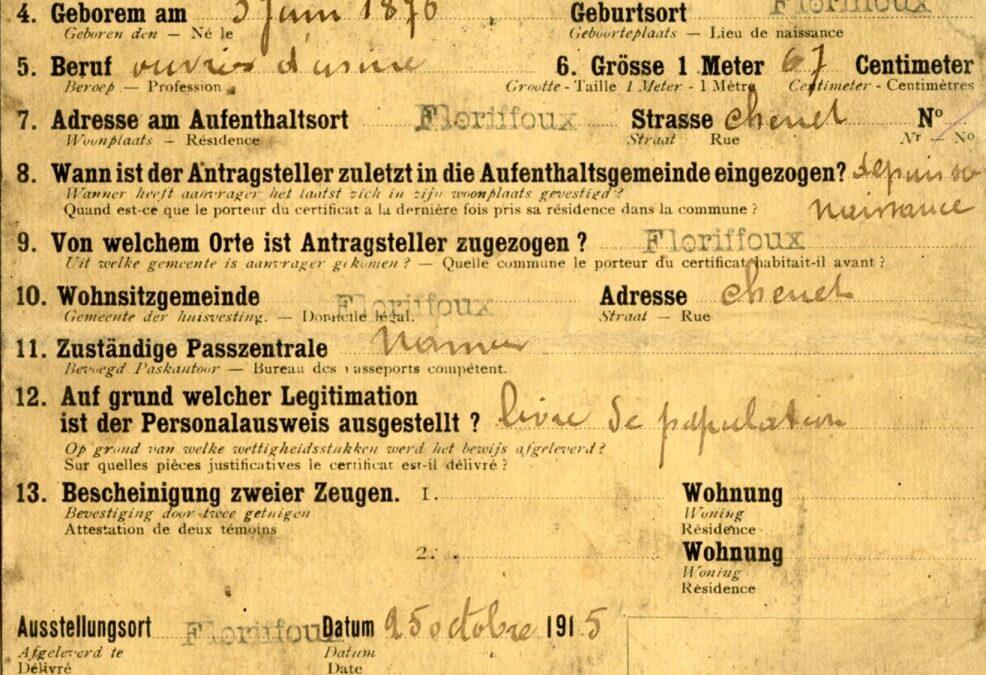 4. Geborem am 3 Juin 1876 Geburtsort Floriffoux
Geboren den — Né le Geboorteplaats — Lieu de naissance
5. Beruf ouvrier d'usine 6. Grösse 1 Meter 67 Centimeter
Beroep — Profession Grootte - Taille 1 Meter - 1 Mètre Centimeter - Centimètres
7. Adresse am Aufenthaltsort Floriffoux Strasse chenet No
Woonplaats — Résidence Straat — Rue Nr — No
8. Wann ist der Antragsteller zuletzt in die Aufenthaltsgemeinde eingezogen? depuis sa
Wanner heeft aanvrager het laatst zich in zijn woonplaats gevestigd?
Quand est-ce que le porteur du certificat a la dernière fois pris sa résidence dans la commune ? naissance
9. Von welchem Orte ist Antragsteller zugezogen ? Floriffoux
Uit welke gemeente is aanvrager gekomen ? — Quelle commune le porteur du certificat habitait-il avant ?
10. Wohnsitzgemeinde Floriffoux Adresse chenet
Gemeente der huisvesting. — Domicile légal. Straat — Rue
11. Zuständige Passzentrale Namur
Bevoegd Paskantoor — Bureau des passeports compétent.
12. Auf grund welcher Legitimation
ist der Personalausweis ausgestellt ? livre de population
Op grond van welke wettigheidsstukken werd het bewijs afgeleverd ?
Sur quelles pièces justificatives le certificat est-il délivré ?
13. Bescheinigung zweier Zeugen. 1. Wohnung
Bevestiging door twee getuigen Woning
Attestation de deux témoins Résidence
2. Wohnung
Woning
Résidence
Ausstellungsort Floriffoux Datum 25 octobre 1915
Afgeleverd te Datum
Délivré Date